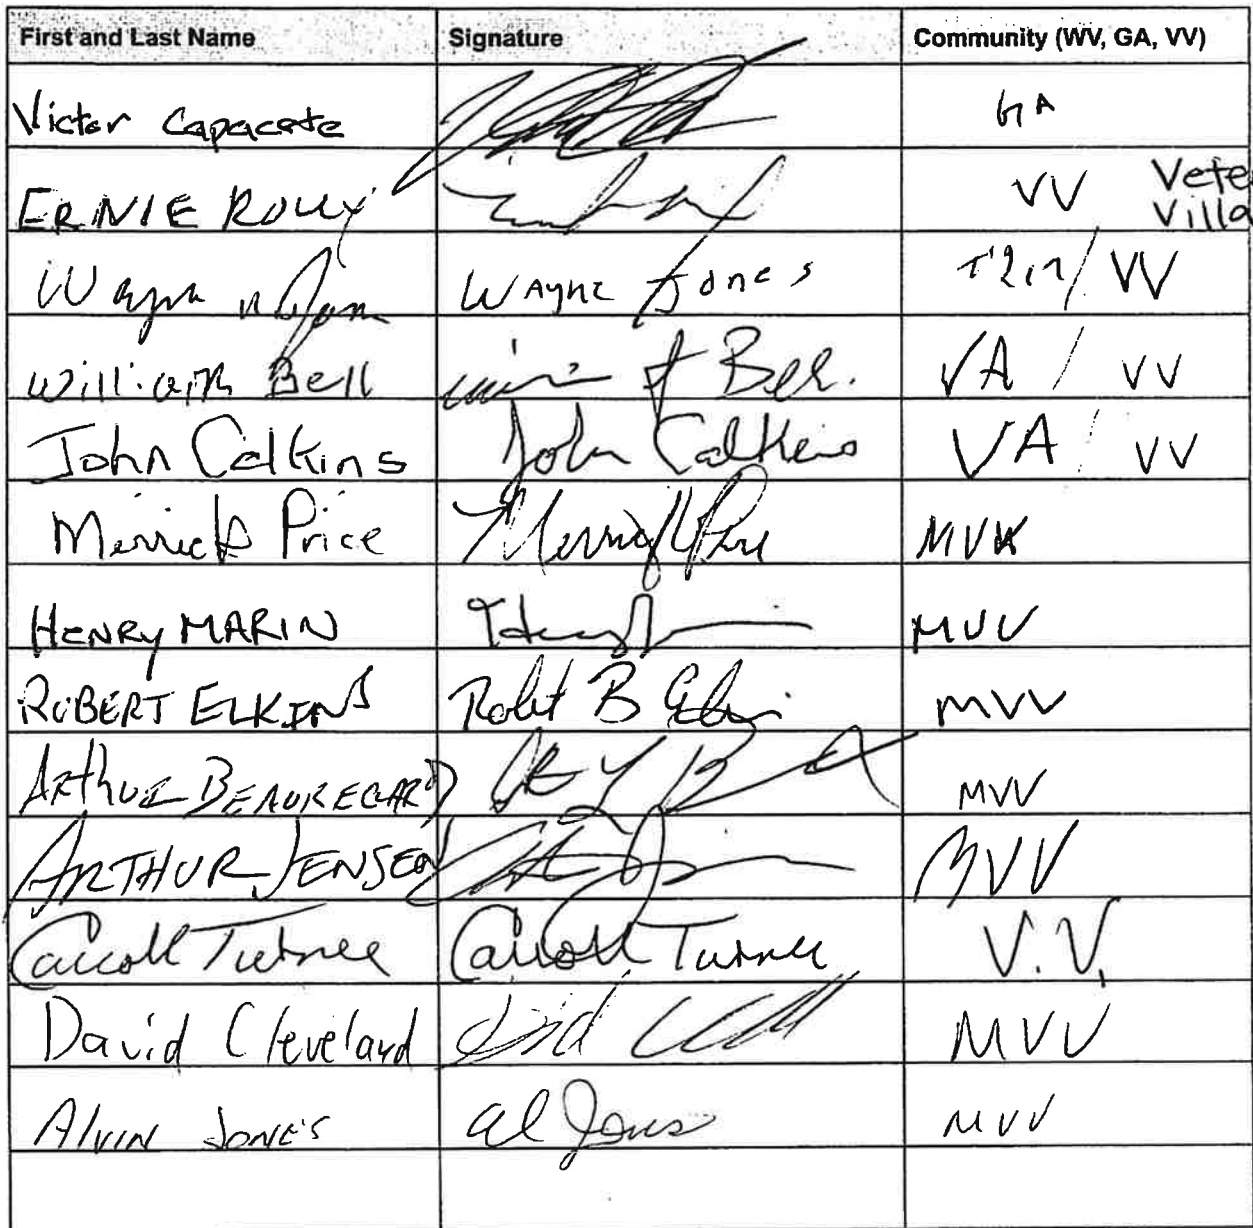 First and Last Name Signature Community (WV, GA, VV)
Victor Capacete GA
ERNIE ROUX VV Vete
Villa
Wayne Jones WAYNE Jones VV
William Bell Bell. VA / VV
John Calkins John Calkins VA / VV
Merrick Price Merrick Price MVV
HENRY MARIN Henry MVV
ROBERT ELKINS Robert B Elkins MVV
ARthuR BEAUREGARD MVV
ARTHUR JENSEN MVV
Carroll Turner Carroll Turner V.V.
David Cleveland MVV
Alvin JONES al Jones MVV